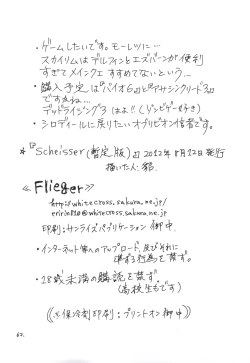 ・ゲームしたいです。モーレツに…
スカイリムはデルフィンとエズバーンが便利
すぎてメインクエすすめてないという…
・購入予定は『バイオ6』と『アサシンクリード3』
ですかね…
デッドライジング3はよ!!(ゾンビゲー好き)
・シロディールに戻りたいオブリビオン信者です。
*『Scheisser(暫定版)』2012年8月12日発行
描いた人:
≪Flieger≫
http://whitecross.sakura.ne.jp/
@whitecross.sakura.ne.jp
印刷:サンライズパブリケーション御中
・インターネット等へのアップロード、及びそれに
準ずる行為を禁ず。
・18歳未満の購読を禁ず
(高校生もです)
((※保冷剤印刷:プリントオン御中))
62